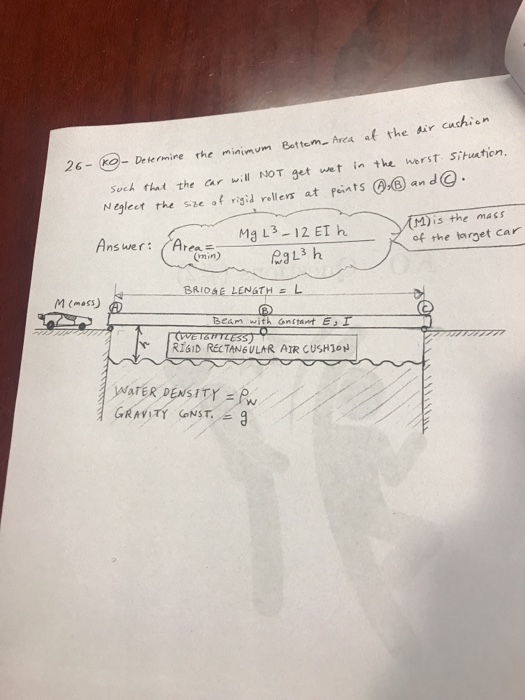 26- (KO)- Determine the minimum Bottom-Area of the air cushion
such that the car will NOT get wet in the worst situation.
Neglect the size of rigid rollers at points (A),(B) and (C).
Answer: Area(min) = (MgL³ - 12EIh) / (ρwgL³h)
(M) is the mass
of the larget car
BRIDGE LENGTH = L
M (mass)
A
B
C
Beam with Constant E, I
(WEIGHTLESS)
RIGID RECTANGULAR AIR CUSHION
h
WATER DENSITY = ρw
GRAVITY CONST. = g